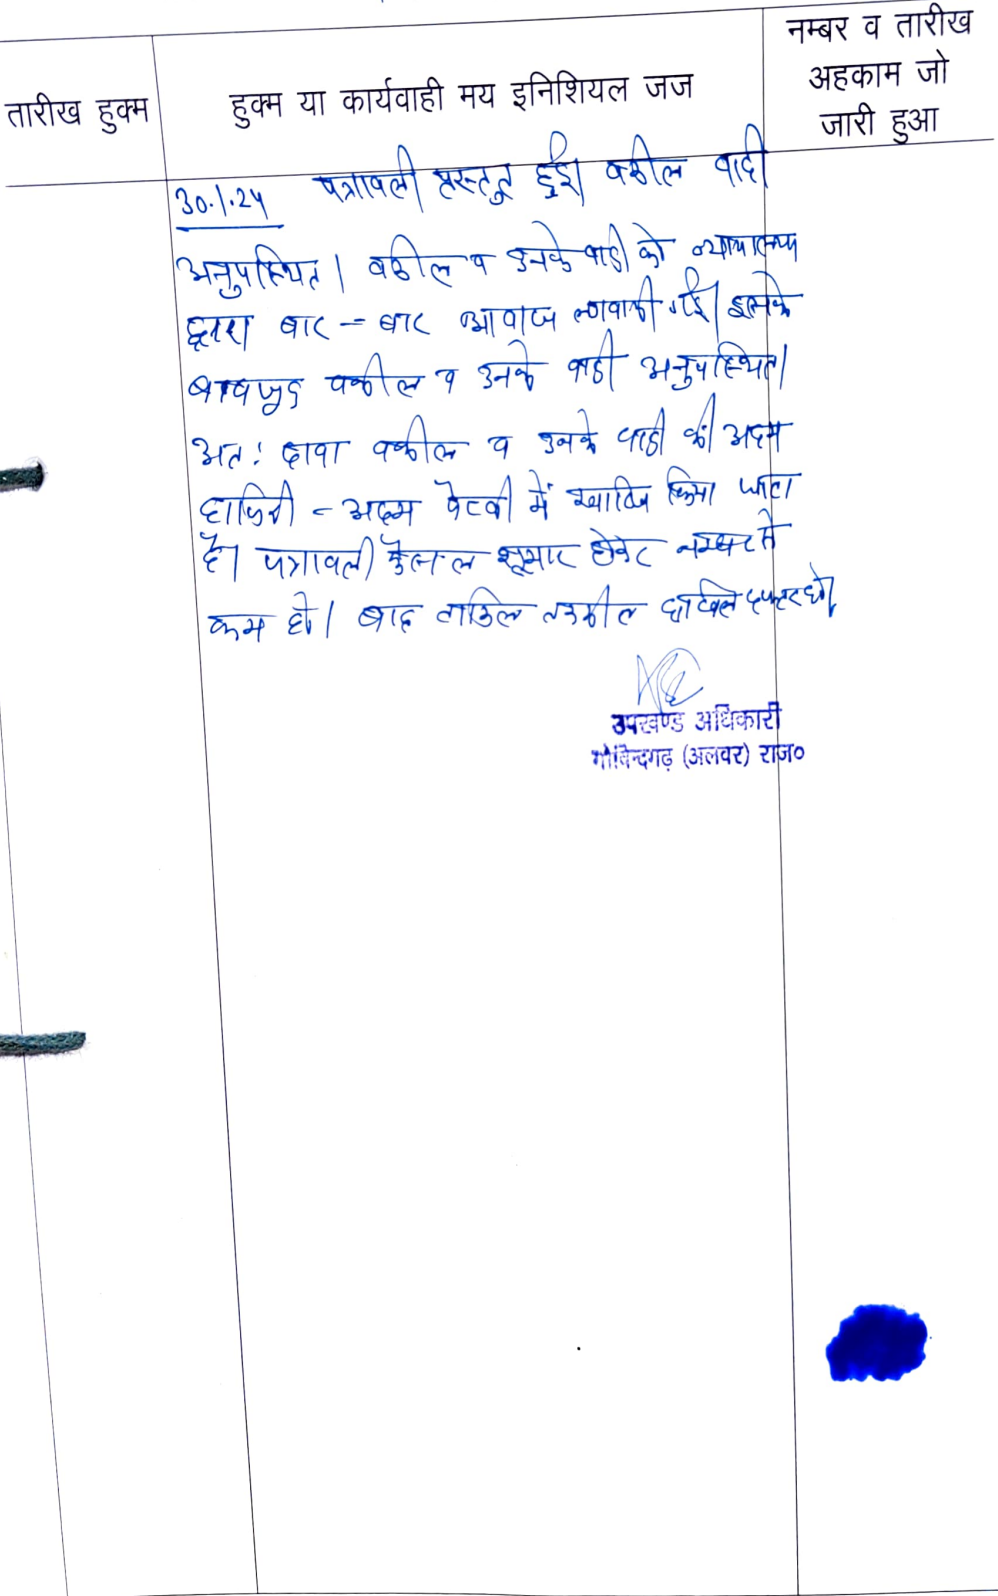 नम्बर व तारीख
अहकाम जो
जारी हुआ
तारीख हुक्म
हुक्म या कार्यवाही मय इनिशियल जज
30.1.24 पत्रावली प्रस्तुत हुई। वकील वादी
अनुपस्थित। वकील व उनके वादी को न्यायालय
द्वारा बार - बार आवाज लगवायी गई। इसके
बावजूद वकील व उनके वादी अनुपस्थित।
अत: दावा वकील व उनके वादी की अदम
हाजिरी - अदम पैरवी में खारिज किया जाता
है। पत्रावली फैसल शूमार होकर नम्बर से
कम हो। बाद तामिल तकमील दाखिल दफ्तर हो।
उपखण्ड अधिकारी
गोविन्दगढ़ (अलवर) राज०